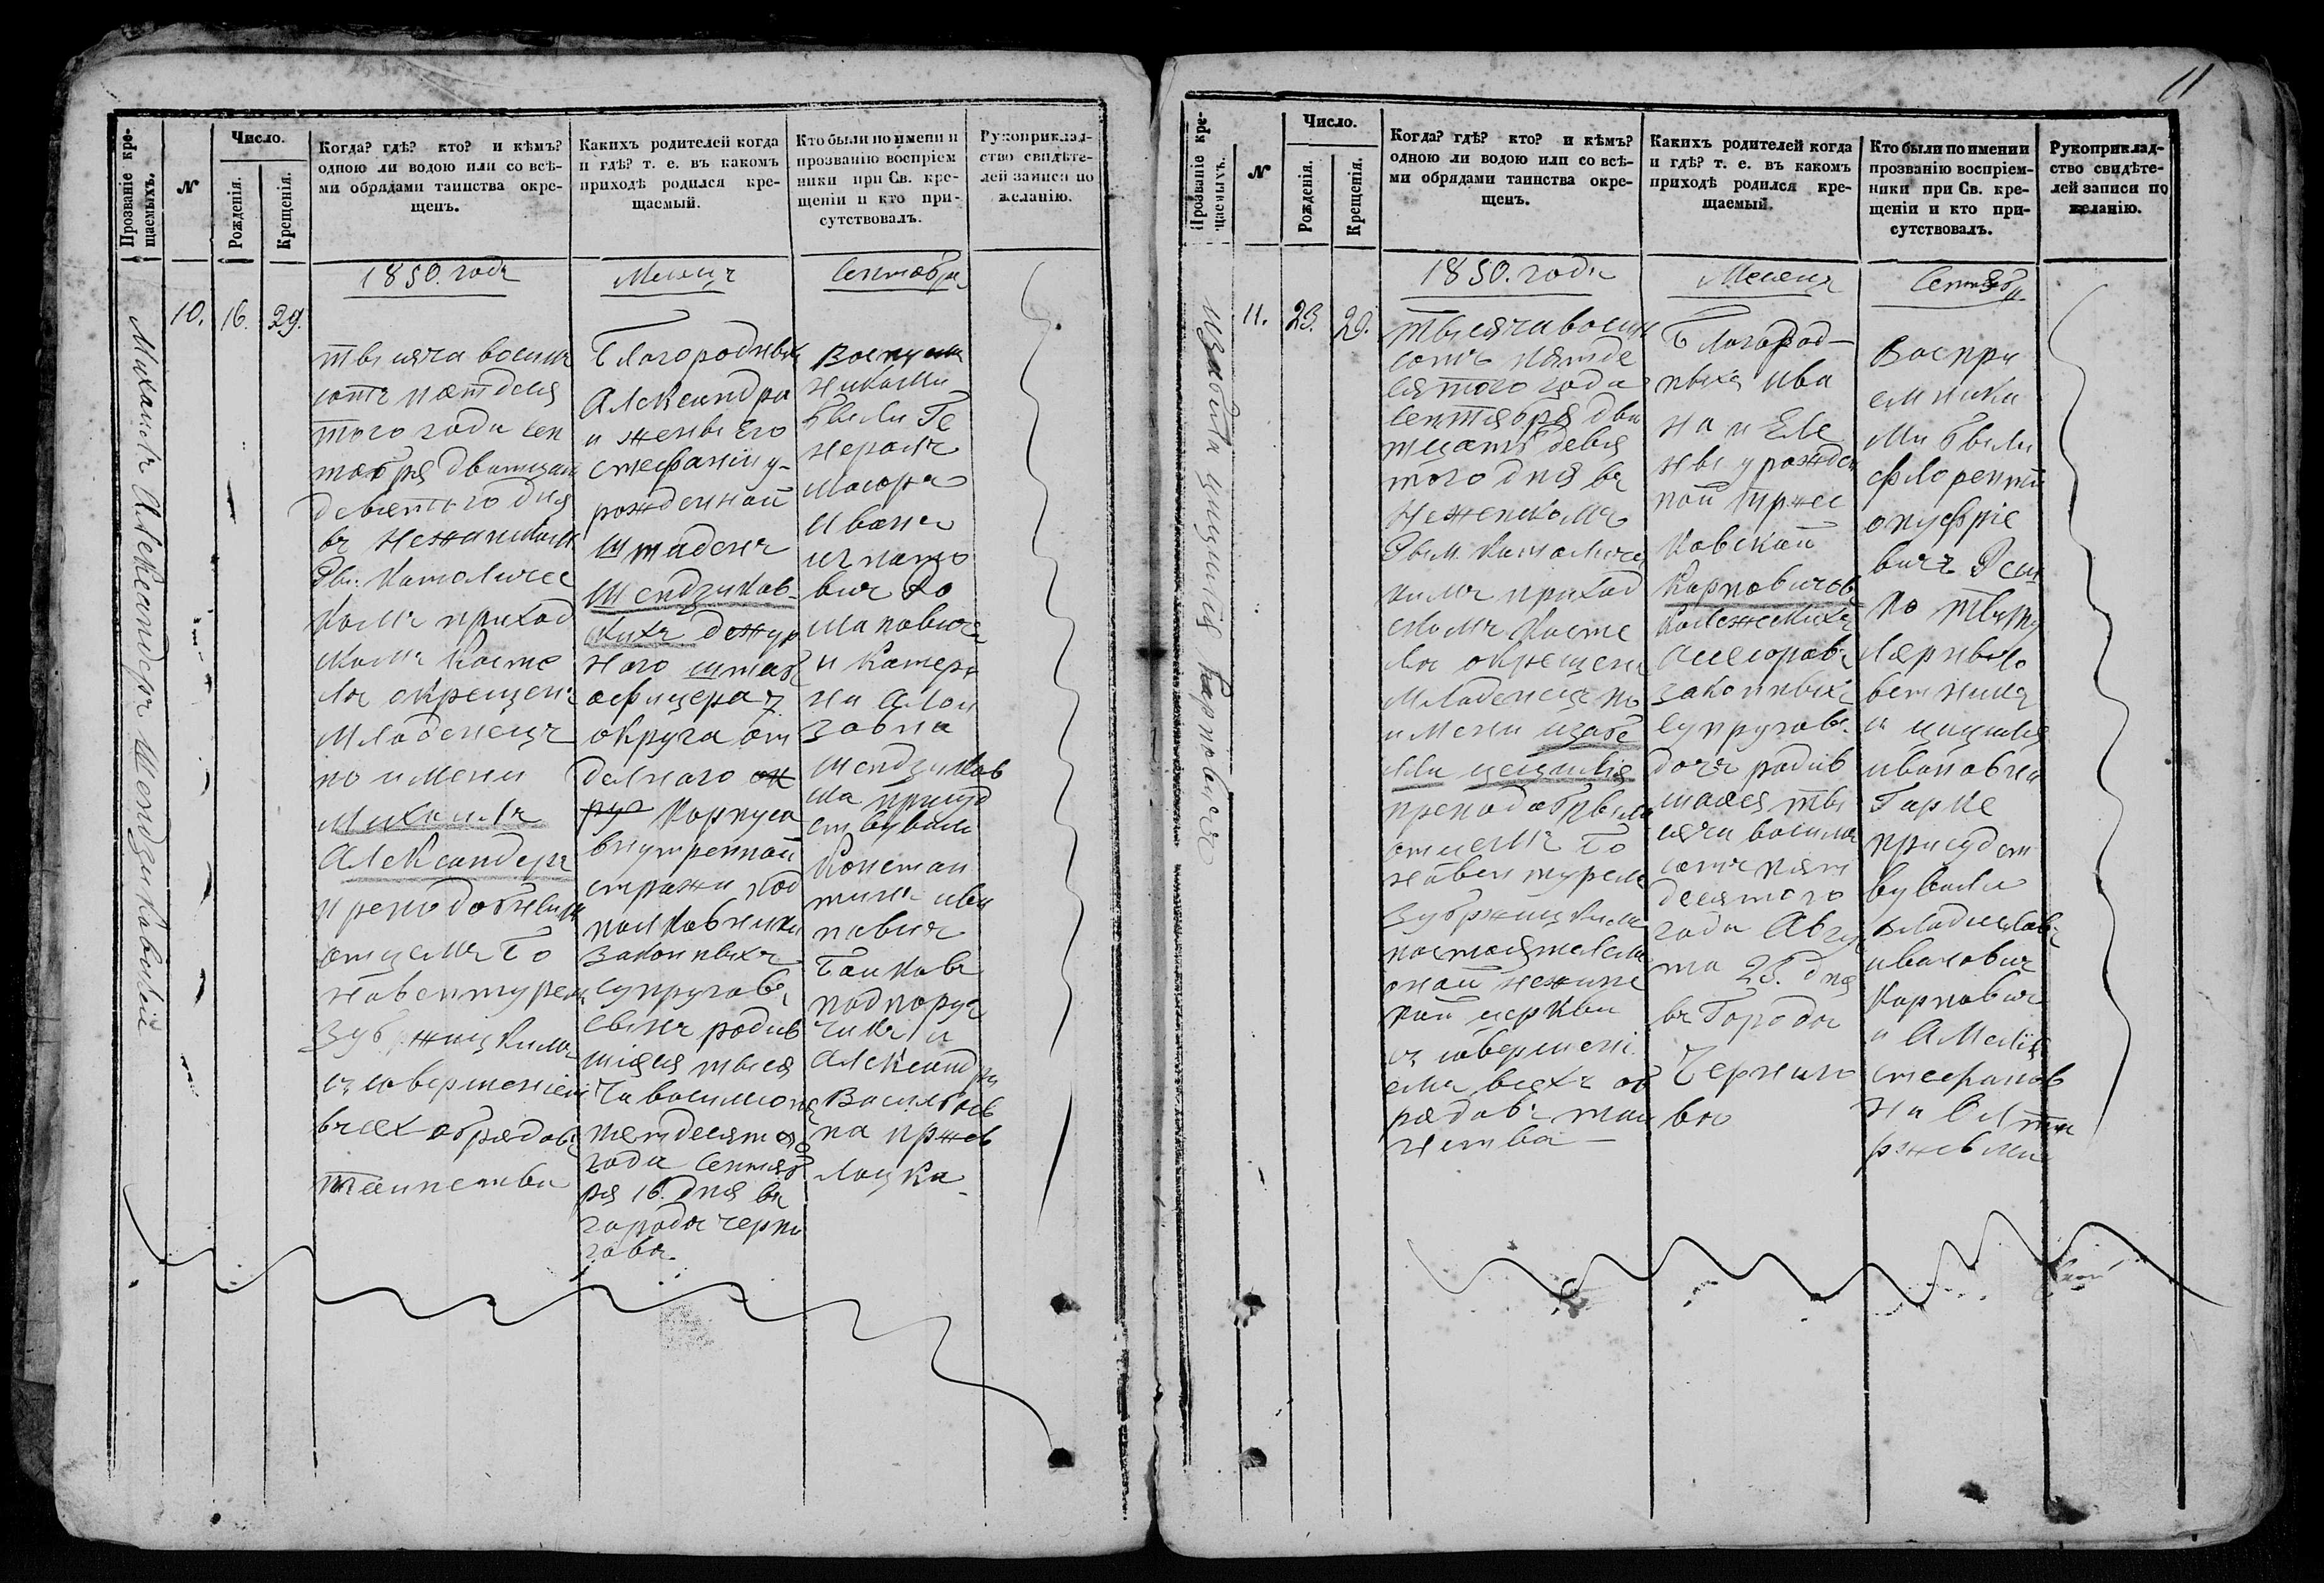 11
Прозваніе кре-
щаемыхъ.
N
Число.
Рожденія.
Крещенія.
Когда? гдѣ? кто? и кѣмъ?
одною ли водою или со всѣ-
ми обрядами таинства окре-
щенъ.
Какихъ родителей когда
и гдѣ? т. е. въ какомъ
приходѣ родился кре-
щаемый.
Кто были по имени и
прозванію воспріем
ники при Св. кре-
щеніи и кто при-
сутствовалъ.
Рукоприклад-
ство свидѣте-
лей записи по
желанію.
1850. года
Месецъ
Сентября
Михаилъ Александеръ Шендзиковскій
10.
16.
29.
тысяча восимъ
сотъ пятдеся
того года сен
тября дватцать
девятого дня
въ Неженскомъ
Рим. Католичес
комъ приход
скомъ Косте
ле окрещенъ
Младенецъ
по имени
Михаилъ
Александеръ
преподобнымъ
отцемъ Бо
навентуремъ
Зубржицкимъ
съ совершеніемъ
всех обрядовъ
таинства
Благородныхъ
Александра
и жены его
Стефаніи у-
рожденной
Штаденъ
Шендзиков-
скихъ дежур
ного штаб
офицера 7.
округа от
делного
Корпуса
внутренной
стражи под
полковника
законныхъ
супруговъ
сынъ родив
шійся тыся
ча восимсотъ
пятдесятого
года Сентяб
ря 16. дня въ
городе Черни
гове.
Воспріем
никами
были Ге
нералъ
маіоръ
Иванъ
Игнато
вич До
манович
и Катери
на Алои
зовна
Шендзиков
ска присуд
ствували
Констан
тинъ Ива
новичъ
Банковъ
подпоруч
чикъ и
Александра
Васильев
на Пржев
лоцка
Прозваніе кре-
щаемыхъ.
N
Число.
Рожденія.
Крещенія.
Когда? гдѣ? кто? и кѣмъ?
одною ли водою или со всѣ-
ми обрядами таинства окре-
щенъ.
Какихъ родителей когда
и гдѣ? т. е. въ какомъ
приходѣ родился кре-
щаемый.
Кто были по имени и
прозванію воспріем-
ники при Св. кре-
щеніи и кто при-
сутствовалъ.
Рукоприклад-
ство свидѣте-
лей записи по
желанію.
1850. года
Месецъ
Сентябр
Изабѣла Цицилія Карповичъ
11.
23.
29.
тысяча восим
сотъ пятде
сятого года
Сентября два
тцать девя
того дня въ
Неженскомъ
Рим. Католичес
кимъ приход
скомъ Косте
ле окрещенъ
Младенецъ по
имени Изабе
ла Цецилія
преподобнымъ
отцемъ Бо
навентуремъ
Зубржицкимъ
настоятелемъ
оной неженс
кой церкви
съ совершені
емъ всехъ об
рядовъ таи
нства
Благород-
ныхъ Ива
на и Еле
ны урожден
ной Тржес
ковской
Карповичовъ
Колежскихъ
Асесоровъ
законныхъ
супруговъ
дочъ родив
шаяся ты
сяча восимъ
сотъ пят
десятого
года Авгу
та 23. дня
въ Городе
Черниго
ве
Воспри
емника
ми были
Флорентій
Онуфріе
вичъ
по титу
лярный со
ветникъ
и Цицилія
Ивановна
Гарке
присудст
вували
Владиславъ
Ивановичъ
Карповичъ
и Амелія
Стефанов
на